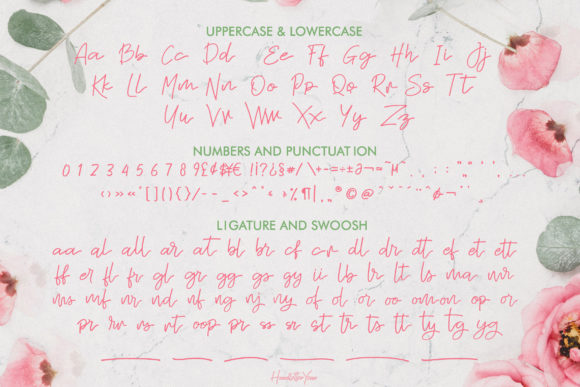 UPPERCASE & LOWERCASE
Aa Bb Cc Dd Ee Ff Gg Hh Ii Jj
Kk Ll Mm Nn Oo Pp Qq Rr Ss Tt
Uu Vv Ww Xx Yy Zz
NUMBERS AND PUNCTUATION
0 1 2 3 4 5 6 7 8 9 £ ¢ $ ¥ € ! i ? ¿ § # / \ + - = ÷ ±
‹ › » « [ ] ( ) { } / - – _ < > % ¶ | ® © @
LIGATURE AND SWOOSH
aa al all ar at bl br cf cr dl dr dt ef et ett
ff er fl fr gl gr gg gs gy ii lb lr lt ls ma mr
ms mf nr nd nf ng nj ny of ol or oo om on op or
pr rr rs rt oop pr ss sr st tr ts tt ty tg yg